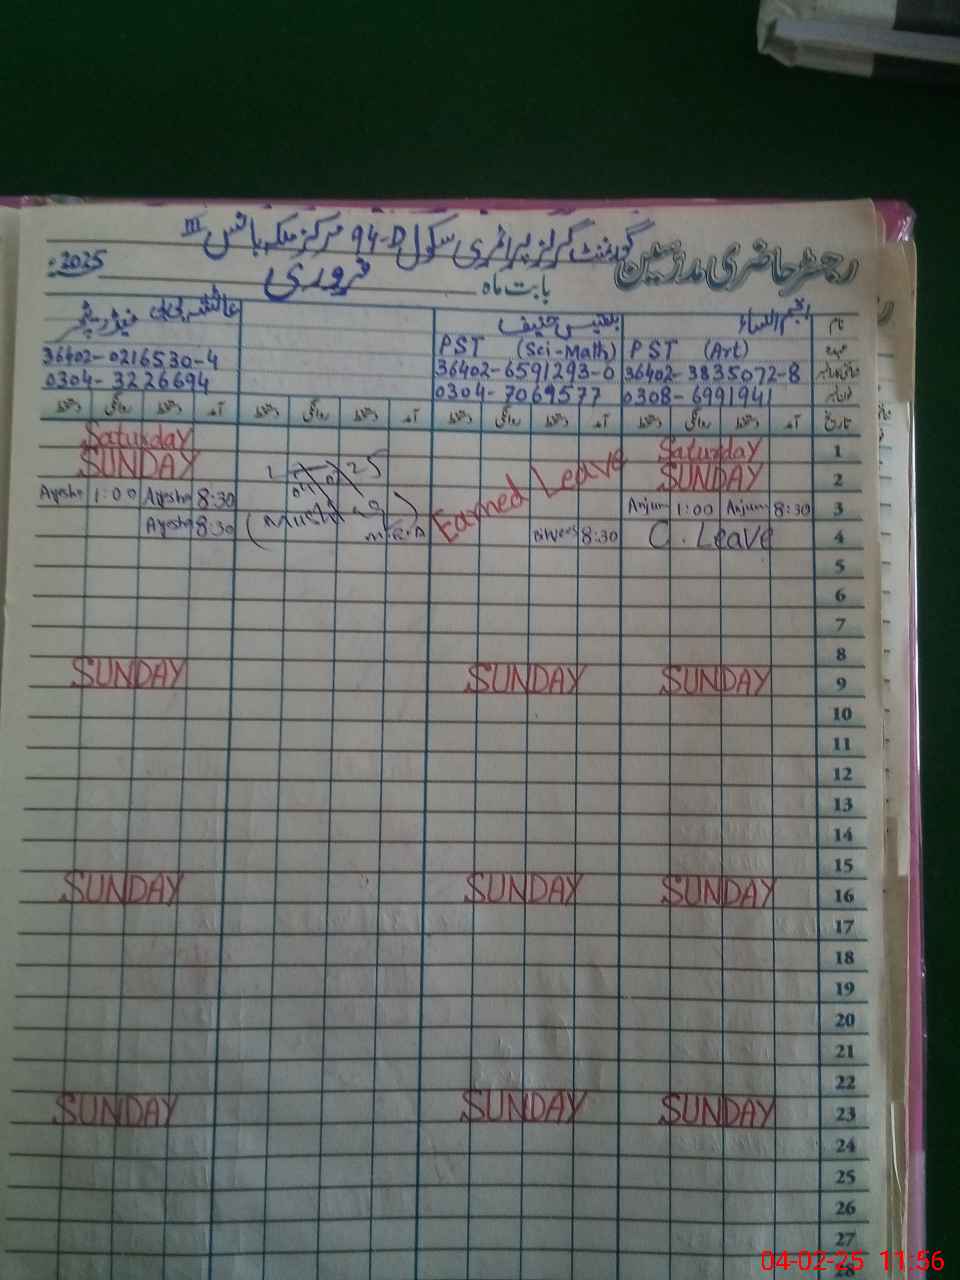 رجسٹر حاضری مدرسین گورنمنٹ گرلز پرائمری سکول 94-D مرکز ملکہ ہانس III
بابت ماہ فروری 2025ء
نام
انجم النساء
بلقیس حنیف
عائشہ بی بی ہیڈ ٹیچر
عہدہ
PST (Art)
PST (Sci-Math)
36402-3835072-8
36402-6591293-0
36402-0216530-4
0308-6991941
0304-7069577
0304-3226694
تاریخ آمد دستخط روانگی دستخط آمد دستخط روانگی دستخط آمد دستخط روانگی دستخط آمد دستخط روانگی دستخط
1 Saturday Saturday
2 SUNDAY SUNDAY
Earned Leave
3 8:30 Anjum 1:00 Anjum 8:30 Ayesha 1:00 Ayesha
4 C. Leave 8:30 8:30 Ayesha
5
6
7
8
9 SUNDAY SUNDAY SUNDAY
10
11
12
13
14
15
16 SUNDAY SUNDAY SUNDAY
17
18
19
20
21
22
23 SUNDAY SUNDAY SUNDAY
24
25
26
27
28
04-02-25 11:56